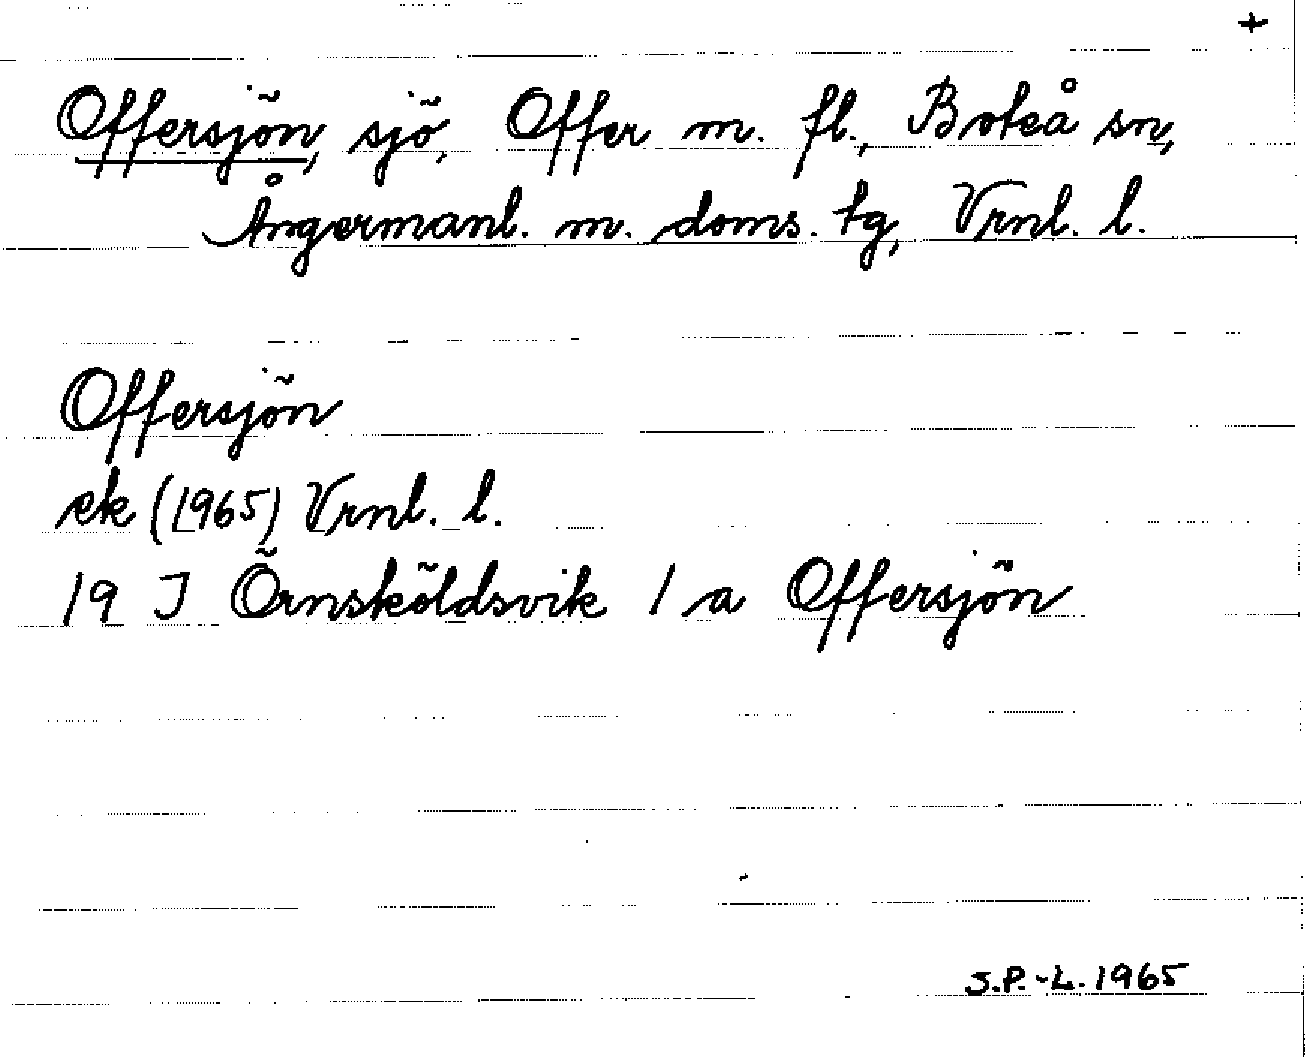 +
Offersjön, sjö, Offer m. fl., Boteå sn,
Ångermanl. m. doms. tg, Vrnl. l.
Offersjön
ek (1965) Vrnl. l.
19 J Örnsköldsvik 1 a Offersjön
S.P.-L. 1965